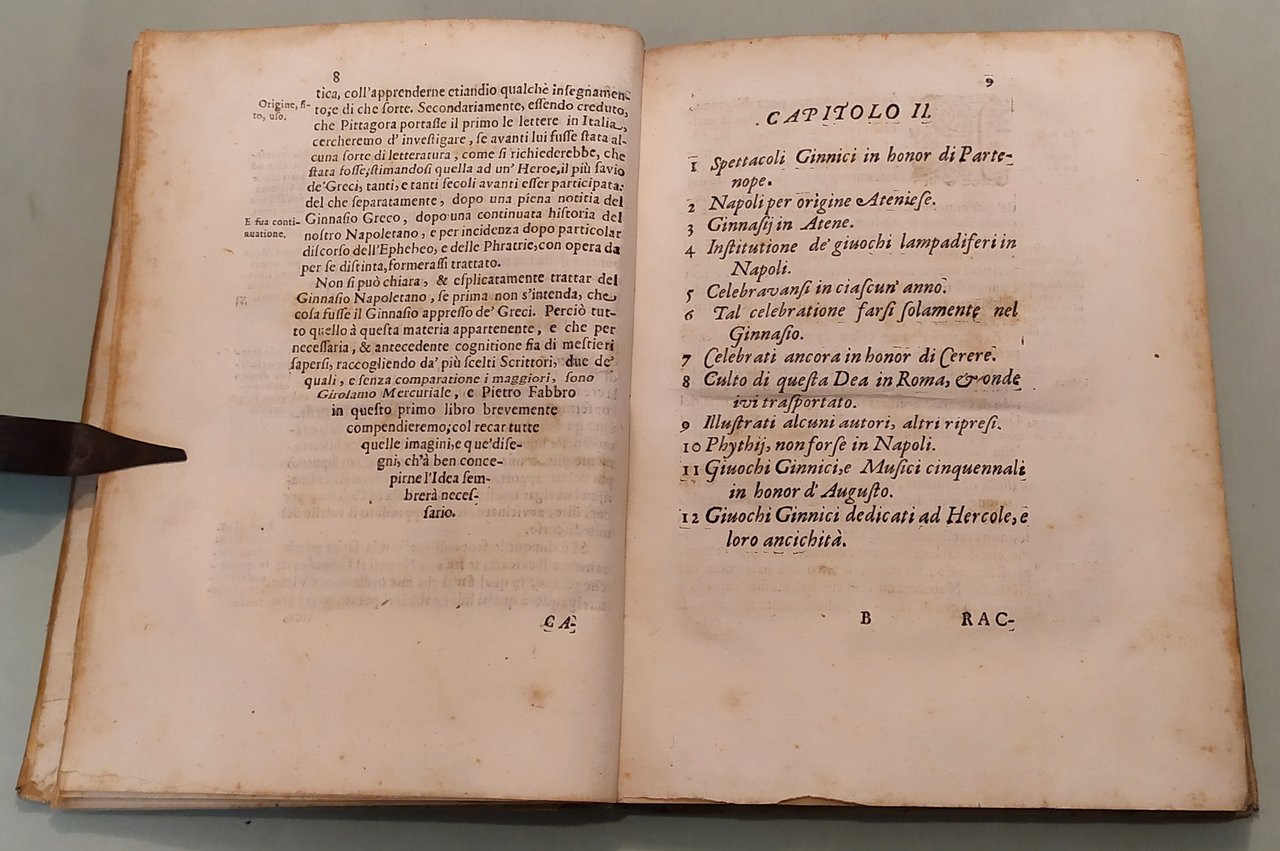 8
tica, coll'apprenderne etiandio qualche insegnamen-
Origine, si-
to, uso.
to;e di che sorte. Secondariamente, essendo creduto,
che Pittagora portasse il primo le lettere in Italia,
cercheremo d' investigare, se avanti lui fusse stata al-
cuna sorte di letteratura, come si richiederebbe, che
stata fosse,stimandosi quella ad un' Heroe,il più savio
de'Greci, tanti, e tanti secoli avanti esser participata:
del che separatamente, dopo una piena notitia del
E sua conti-
nuatione.
Ginnasio Greco, dopo una continuata historia del
nostro Napoletano, e per incidenza dopo particolar
discorso dell'Ephebeo, e delle Phratrie, con opera da
per se distinta, formerassi trattato.
Non si può chiara, & esplicatamente trattar del
Ginnasio Napoletano, se prima non s'intenda, che
cosa fusse il Ginnasio appresso de' Greci. Perciò tut-
to quello à questa materia appartenente, e che per
necessaria, & antecedente cognitione fia di mestieri
sapersi, raccogliendo da' più scelti Scrittori, due de'
quali, e senza comparatione i maggiori, sono
Girolamo Mercuriale, e Pietro Fabbro
in questo primo libro brevemente
compendieremo;col recar tutte
quelle imagini, e que'dise-
gni, ch'à ben conce-
pirne l'Idea sem-
brerà neces-
sario.
CA-
9
CAPITOLO II.
1 Spettacoli Ginnici in honor di Parte-
nope.
2 Napoli per origine Ateniese.
3 Ginnasij in Atene.
4 Institutione de' giuochi lampadiferi in
Napoli.
5 Celebravansi in ciascun' anno.
6 Tal celebratione farsi solamente nel
Ginnasio.
7 Celebrati ancora in honor di Cerere.
8 Culto di questa Dea in Roma, & onde
ivi trasportato.
9 Illustrati alcuni autori, altri ripresi.
10 Phythij, non forse in Napoli.
11 Giuochi Ginnici, e Musici cinquennali
in honor d' Augusto.
12 Giuochi Ginnici dedicati ad Hercole, e
loro ancichità.
B RAC-